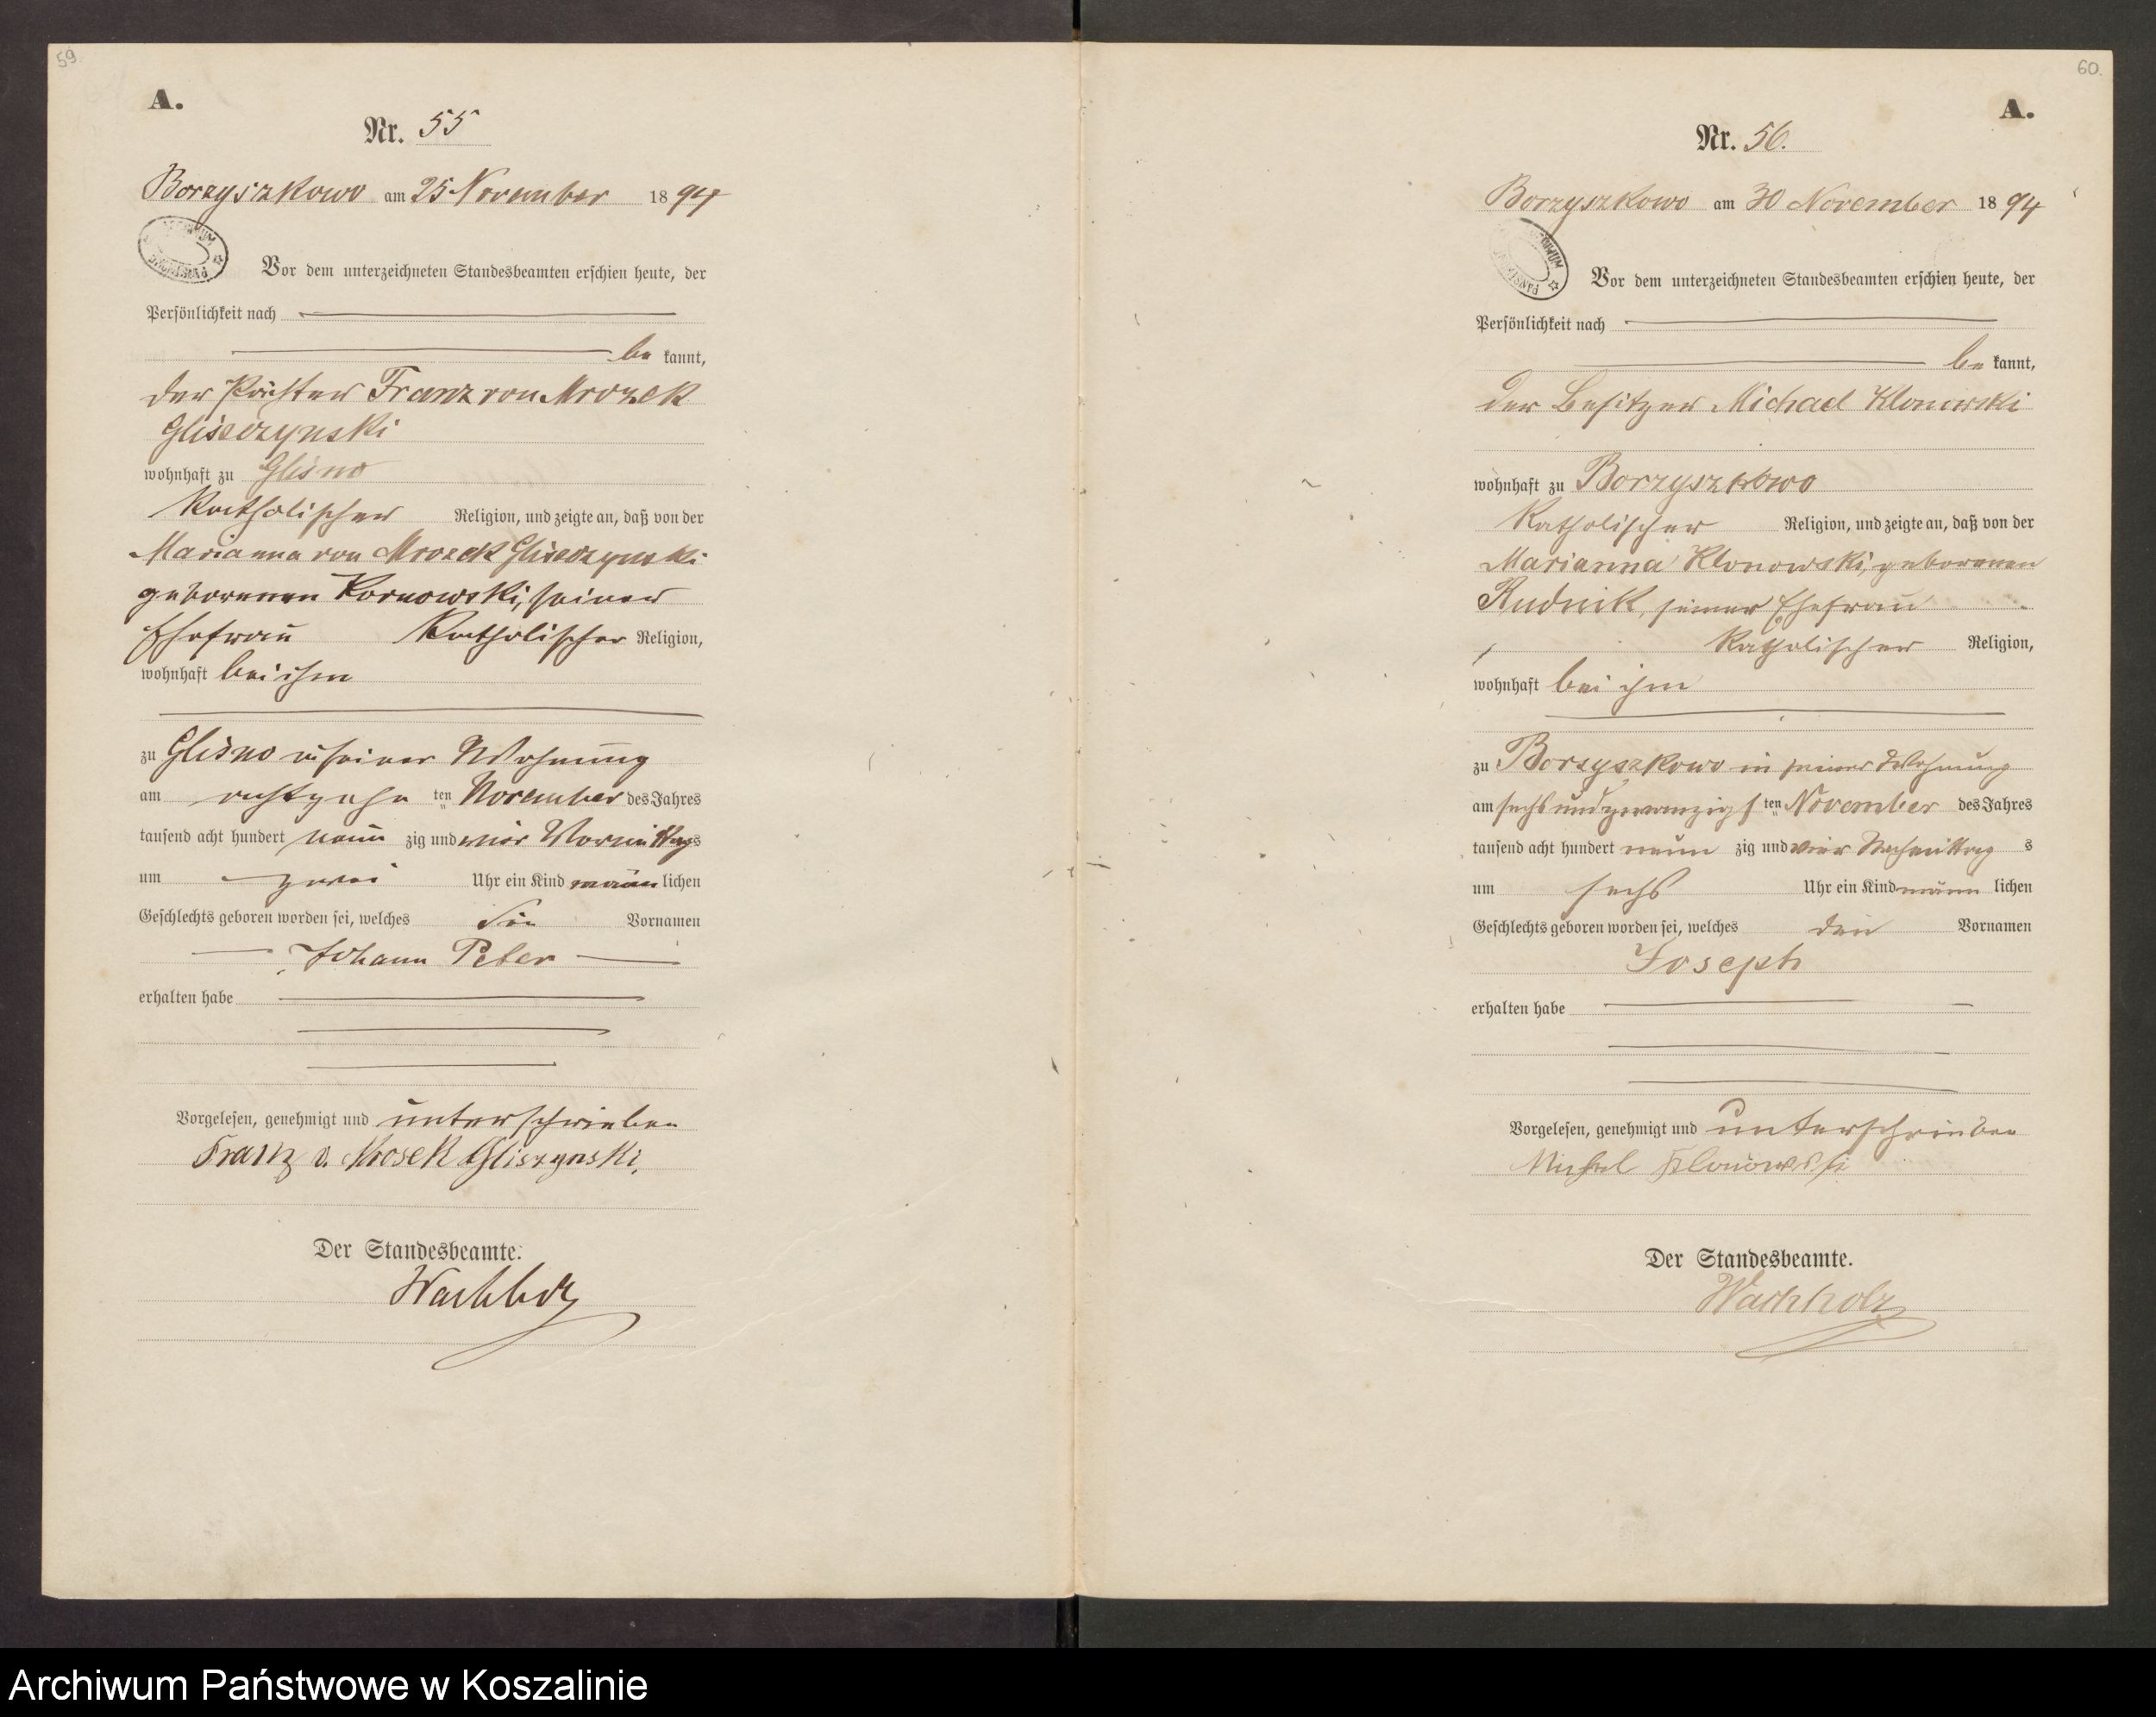 59.
A.
Nr. 55
Borzyszkowo am 25 November 1894
Vor dem unterzeichneten Standesbeamten erschien heute, der
Persönlichkeit nach
be kannt,
der Pächter Franz von Mrozek
Glisczynski
wohnhaft zu Glisno
Katholischer Religion, und zeigte an, daß von der
Marianna von Mrozek Glisczynski
geborenen Kornowski, seiner
Ehefrau Katholischer Religion,
wohnhaft bei ihm
zu Glisno in seiner Wohnung
am achtzehn ten November des Jahres
tausend acht hundert neun zig und vier Vormittags
um zwei Uhr ein Kind männlichen
Geschlechts geboren worden sei, welches die Vornamen
Johann Peter
erhalten habe
Vorgelesen, genehmigt und unterschrieben
Franz v. Mrosek Gliszynski.
Der Standesbeamte.
Wachholz
60.
A.
Nr. 56.
Borzyszkowo am 30 November 1894
Vor dem unterzeichneten Standesbeamten erschien heute, der
Persönlichkeit nach
be kannt,
der Besitzer Michael Klonowski
wohnhaft zu Borzyszkowo
Katholischer Religion, und zeigte an, daß von der
Marianna Klonowski, geborenen
Rudnik, seiner Ehefrau
Katholischer Religion,
wohnhaft bei ihm
zu Borzyszkowo in seiner Wohnung
am sechs und zwanzigs ten November des Jahres
tausend acht hundert neun zig und vier Nachmittag s
um sechs Uhr ein Kind männ lichen
Geschlechts geboren worden sei, welches den Vornamen
Joseph
erhalten habe
Vorgelesen, genehmigt und unterschrieben
Michael Klonowski
Der Standesbeamte.
Wachholz
Archiwum Państwowe w Koszalinie